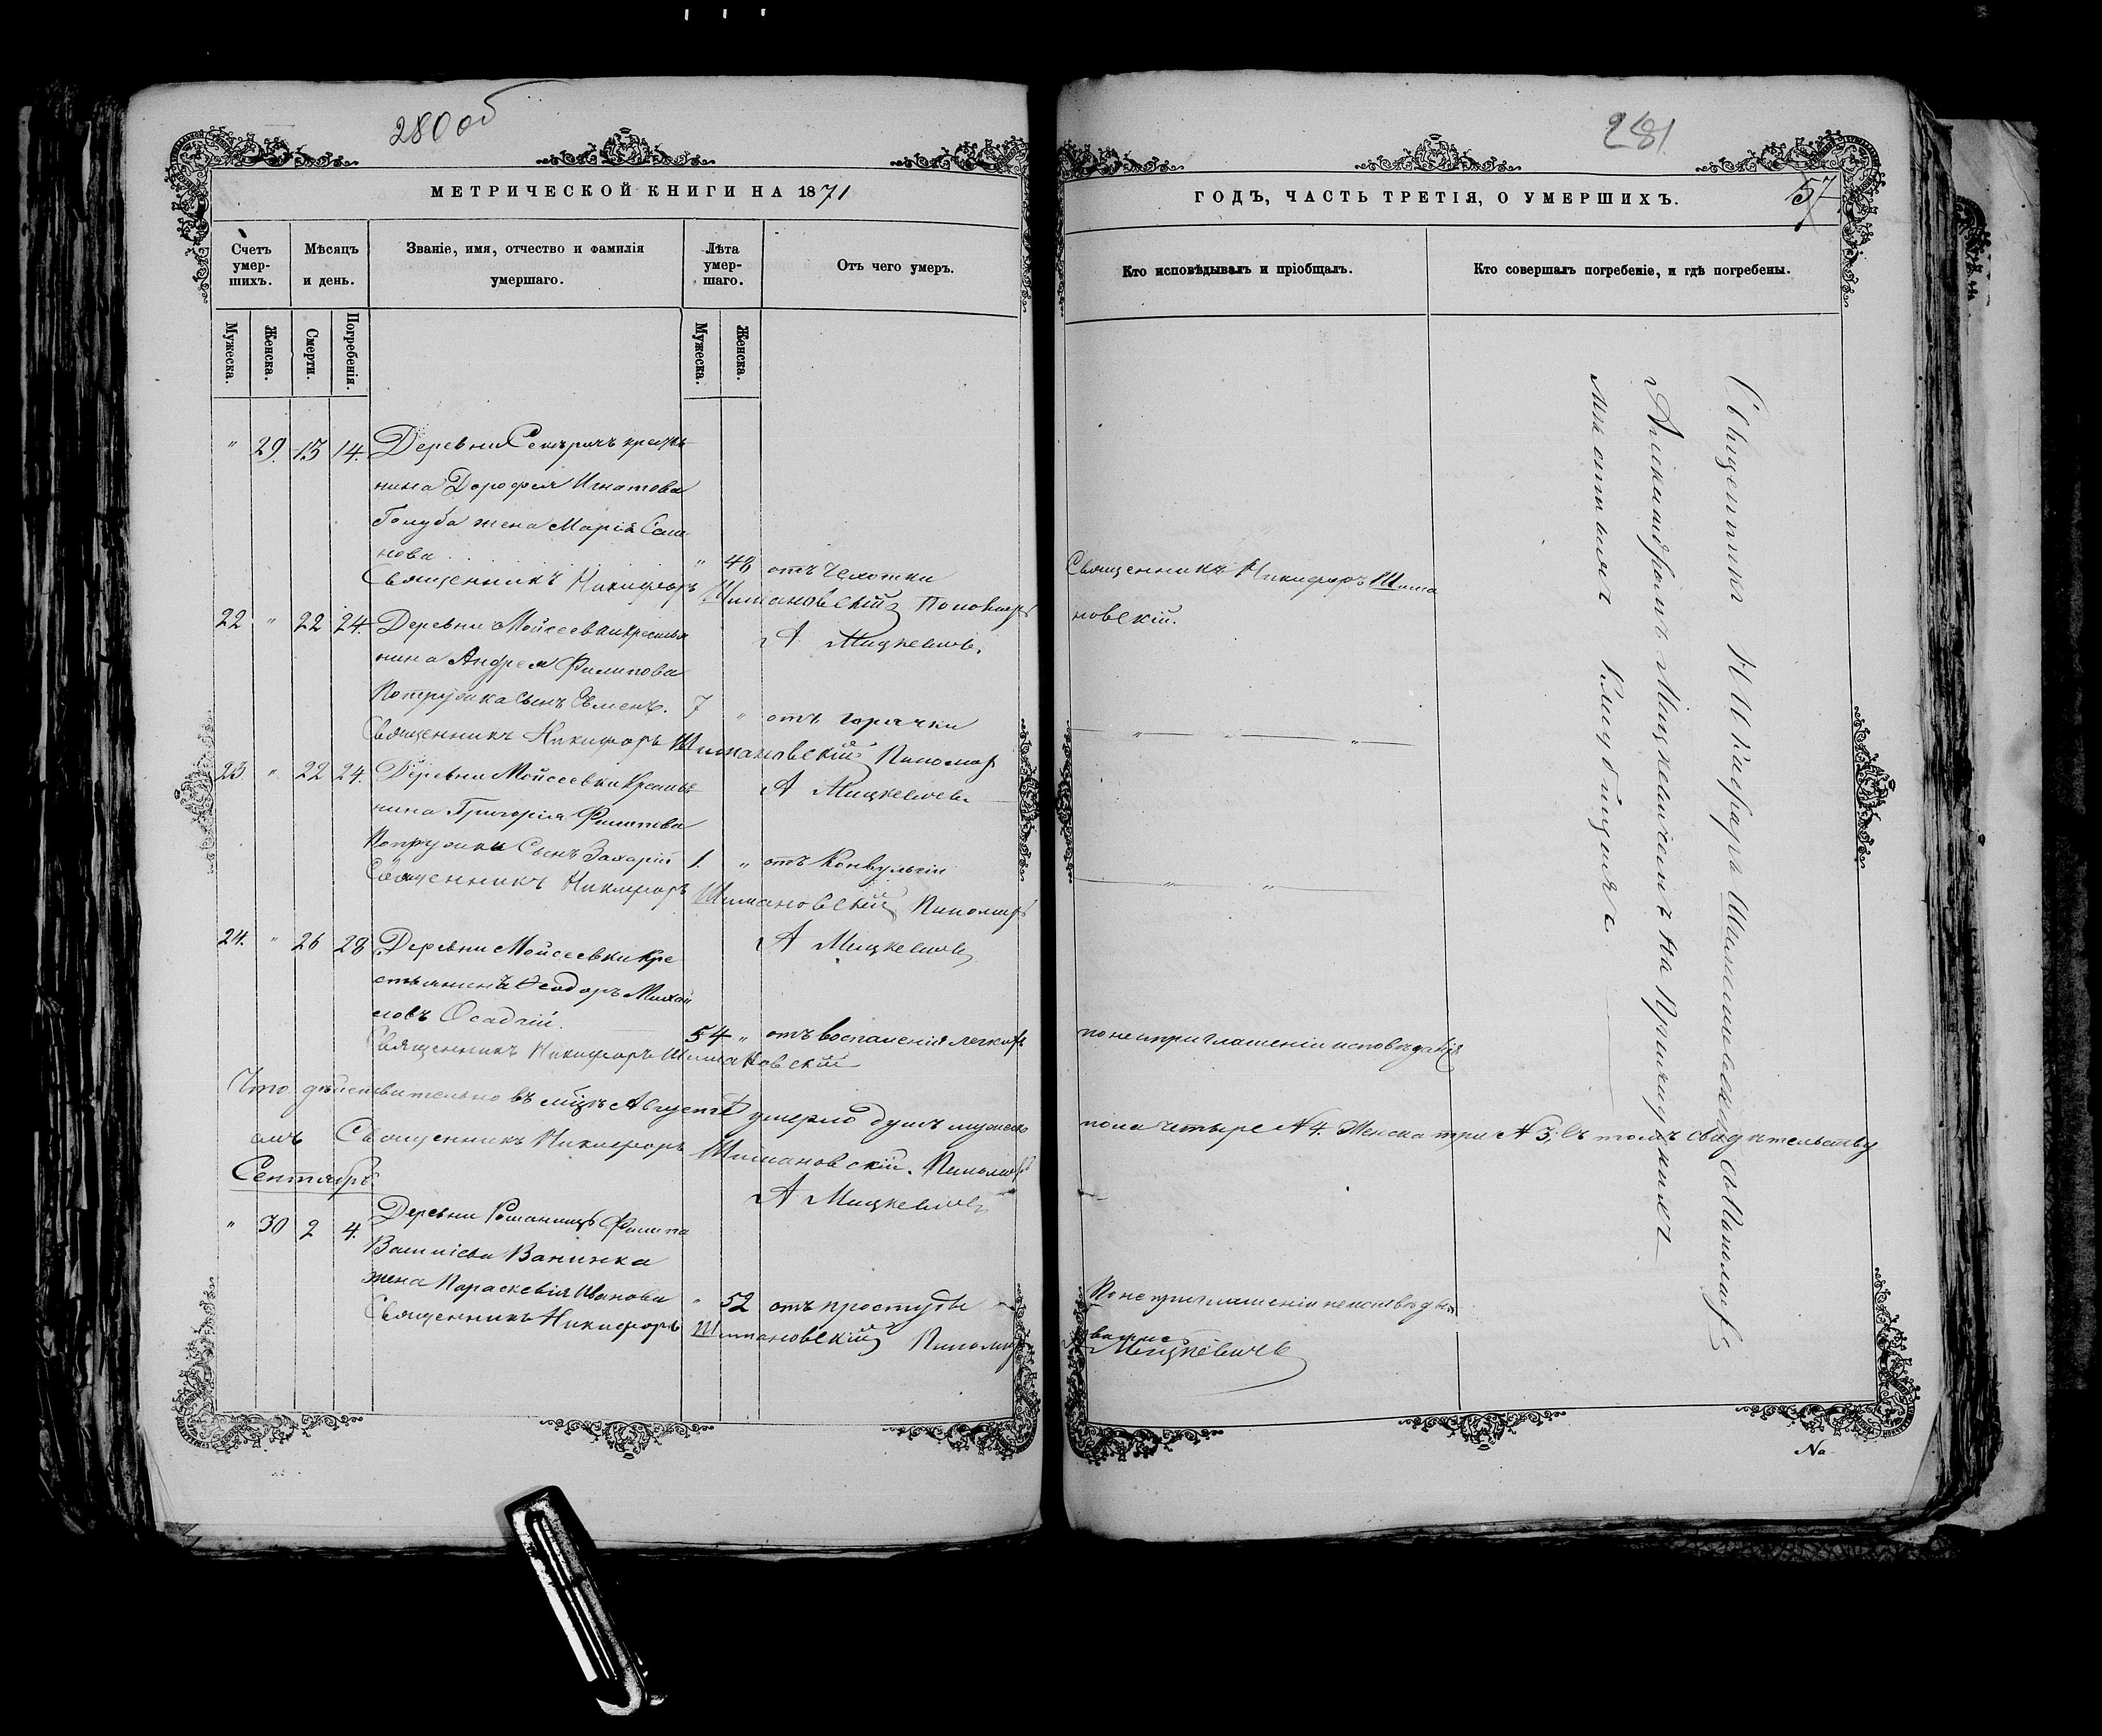 280 об
281
МЕТРИЧЕСКОЙ КНИГИ НА 1871
ГОДЪ, ЧАСТЬ ТРЕТІЯ, О УМЕРШИХЪ.
57
Счетъ умер-шихъ.
Мѣсяцъ и день.
Званіе, имя, отчество и фамилія умершаго.
Лѣта умер-шаго.
Отъ чего умеръ.
Кто исповѣдывалъ и пріобщалъ.
Кто совершалъ погребеніе, и гдѣ погребены.
Мужеска.
Женска.
Смерти.
Погребенія.
Мужеска.
Женска.
" 29. 13 14. Деревни крестья
нина Дорофея Игнатова
Голуба жена Марія Сам-
нова " 48 отъ Чахотки
Священникъ Никифоръ Шимановскій Пономарь
А Мицкевичъ.
Священникъ Никифоръ Шима
новскій.
22 " 22 24. Деревни Мойсеевки крестья
нина Андрея Филипова
сынъ 7 " отъ горячки
Священникъ Никифоръ Шимановскій Пономарь
А Мицкевичъ
23. " 22 24. Деревни Мойсеевки Крестья
нина Григорія
Сынъ Захарій 1. " отъ Конвульсіи
Священникъ Никифоръ Шимановскій Пономарь
А Мицкевичъ
24. " 26 28 Деревни Мойсеевки Кре
стьянинъ Ѳеодоръ Михай
ловъ Осадчій. 54 " отъ воспаленія легкихъ
Священникъ Никифоръ Шимановскій
Что дѣйствительно въ мцѣ Августѣ умерло душъ мужеско
пола четыре № 4. Женска три № 3. въ томъ свидѣтельству
емъ Священникъ Никифоръ Шимановскій. Пономарь
А Мицкевичъ
Сентябрь
" 30 2 4. Деревни Филипа
жена Параскевія Иванова " 52 отъ простуды
Священникъ Никифоръ Шимановскій Пономарь
Мицкевичъ
Священникъ Никифоръ Шимановскій съ Пономаремъ
Александромъ Мицкевичемъ на Приходскомъ
кладбищѣ.
На